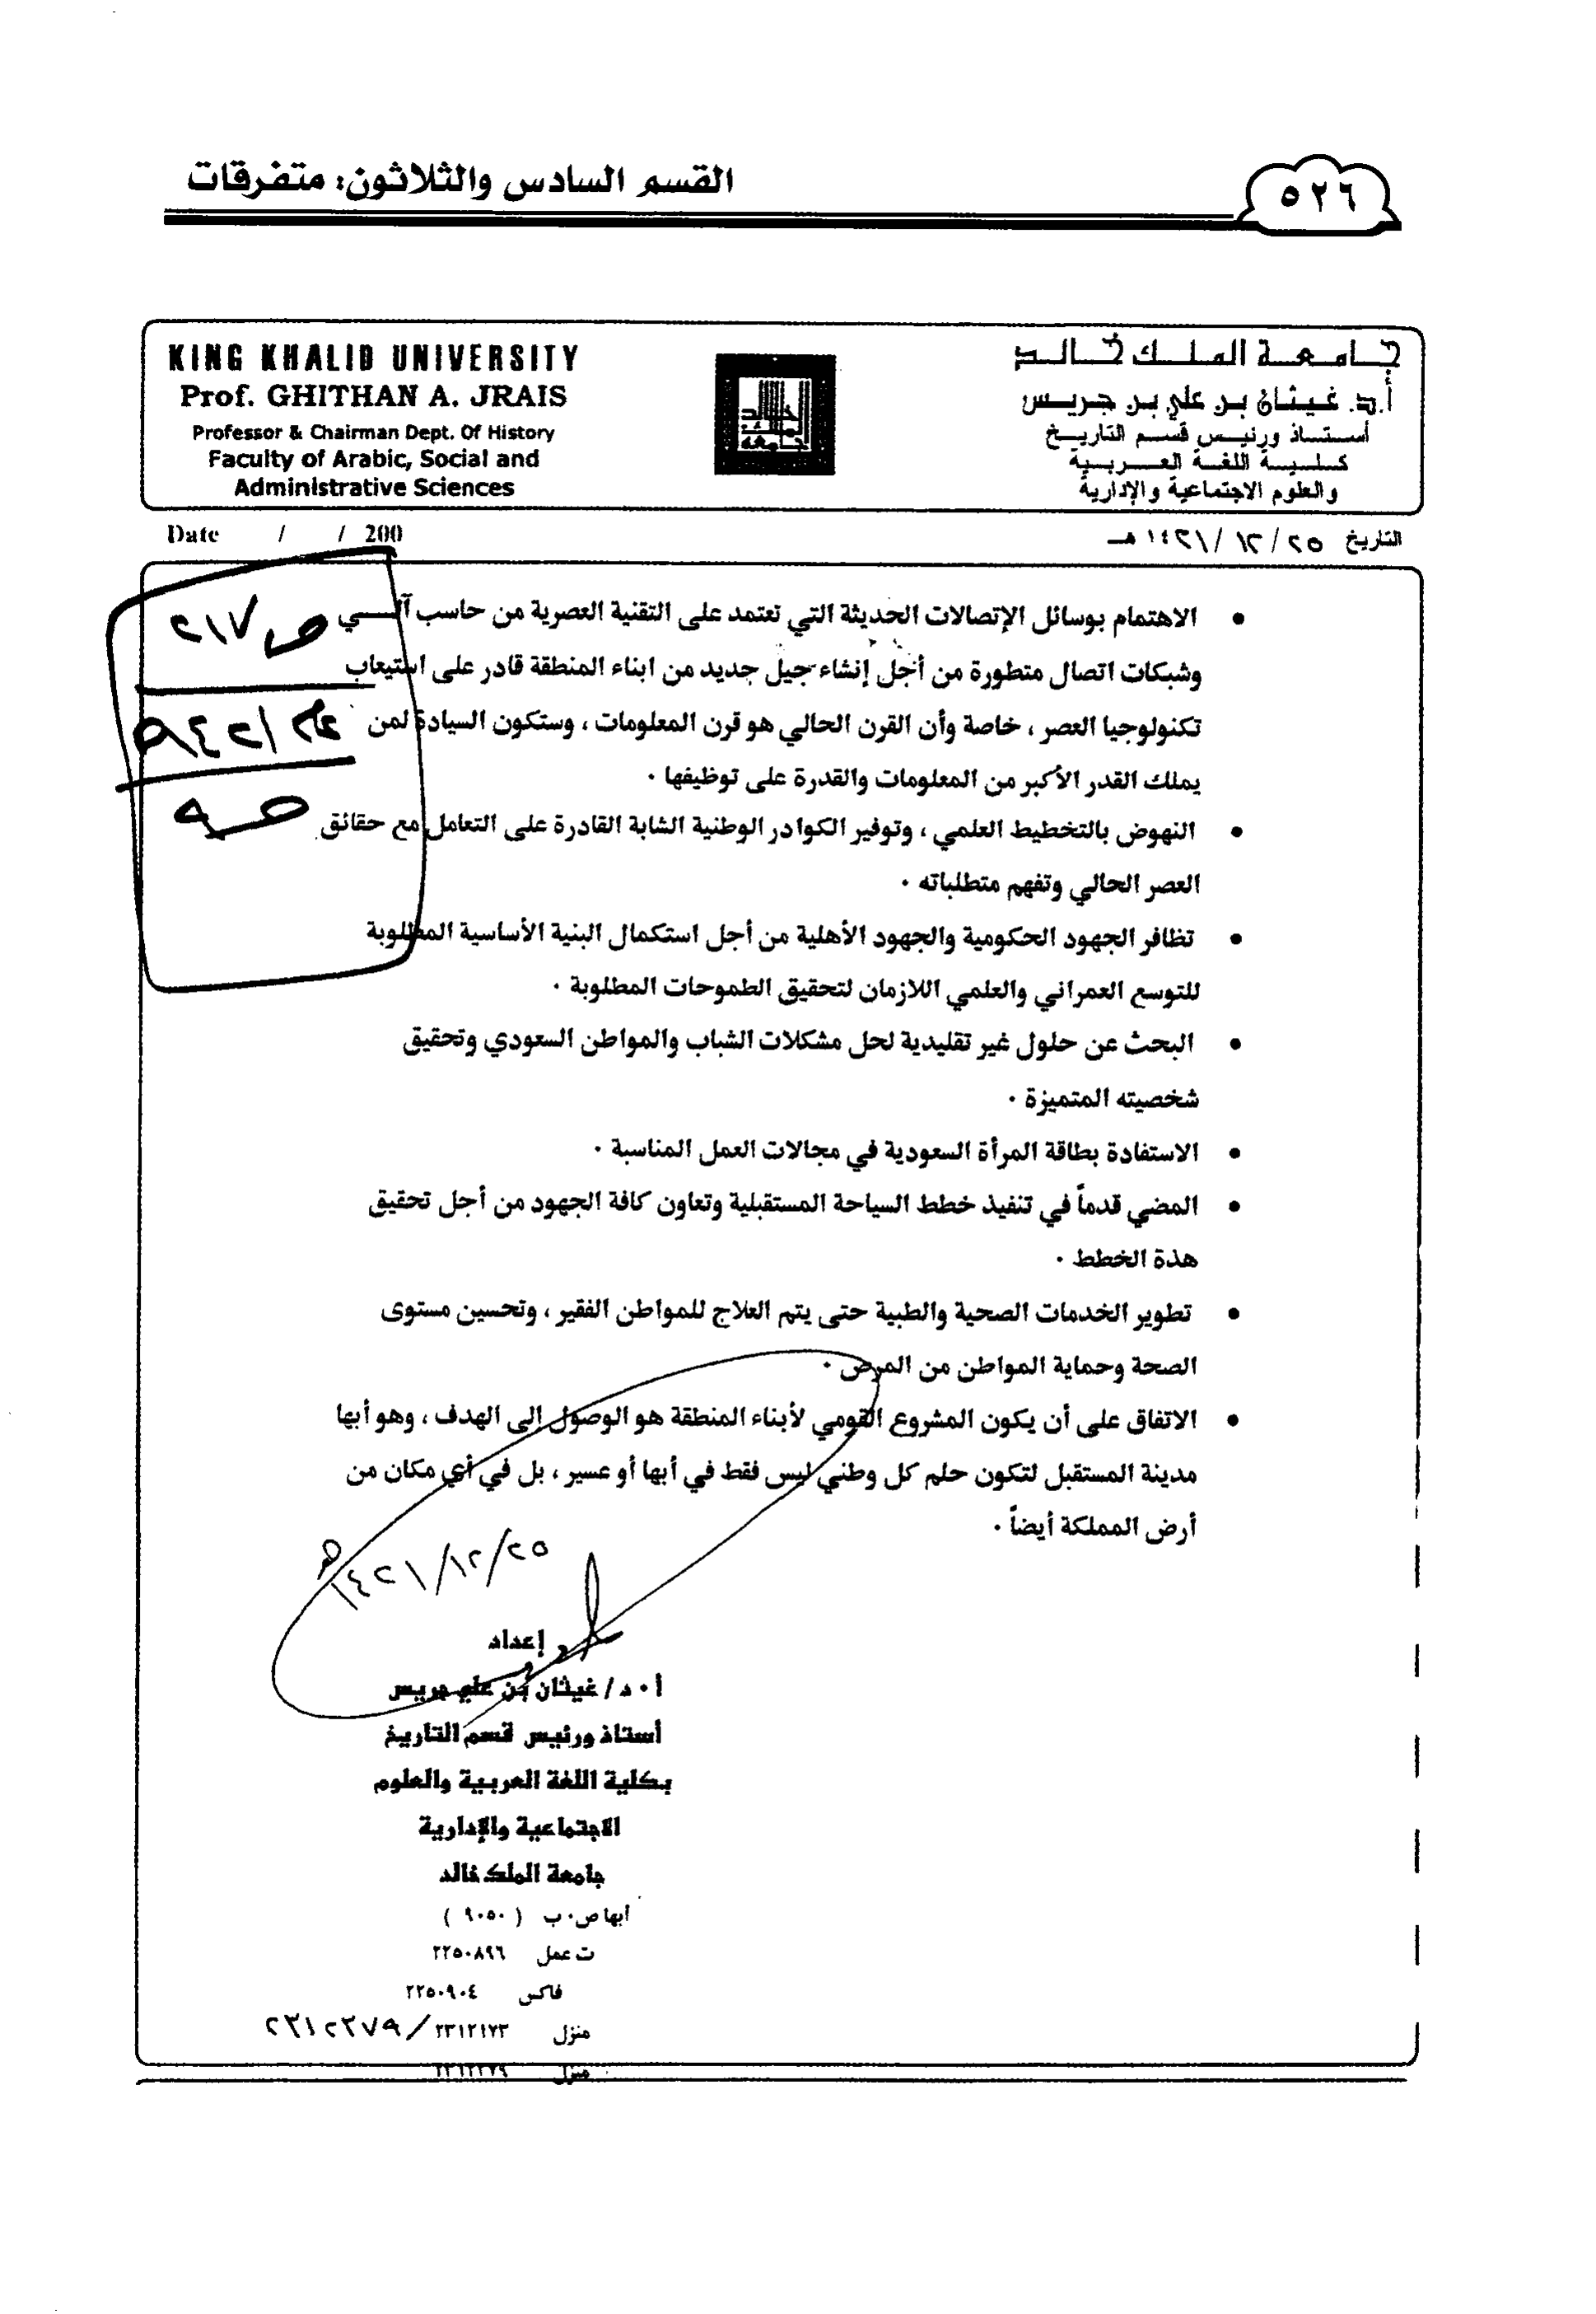 القسم السادس والثلاثون: متفرقات
٥٢٦
KING KHALID UNIVERSITY
Prof. GHITHAN A. JRAIS
Professor & Chairman Dept. Of History
Faculty of Arabic, Social and
Administrative Sciences
جامعة الملك خالد
أ.د. غيثان بن علي بن جريس
أستاذ ورئيس قسم التاريخ
كلية اللغة العربية
والعلوم الاجتماعية والإدارية
Date / / 200
التاريخ ٢٥/١٢/١٤٢١هـ
ص٢١٧
• الاهتمام بوسائل الإتصالات الحديثة التي تعتمد على التقنية العصرية من حاسب آلي
وشبكات اتصال متطورة من أجل إنشاء جيل جديد من ابناء المنطقة قادر على استيعاب
تكنولوجيا العصر ، خاصة وأن القرن الحالي هو قرن المعلومات ، وستكون السيادة لمن
يملك القدر الأكبر من المعلومات والقدرة على توظيفها ٠
• النهوض بالتخطيط العلمي ، وتوفير الكوادر الوطنية الشابة القادرة على التعامل مع حقائق
العصر الحالي وتفهم متطلباته ٠
• تظافر الجهود الحكومية والجهود الأهلية من أجل استكمال البنية الأساسية المطلوبة
للتوسع العمراني والعلمي اللازمان لتحقيق الطموحات المطلوبة ٠
• البحث عن حلول غير تقليدية لحل مشكلات الشباب والمواطن السعودي وتحقيق
شخصيته المتميزة ٠
• الاستفادة بطاقة المرأة السعودية في مجالات العمل المناسبة ٠
• المضي قدماً في تنفيذ خطط السياحة المستقبلية وتعاون كافة الجهود من أجل تحقيق
هذة الخطط ٠
• تطوير الخدمات الصحية والطبية حتى يتم العلاج للمواطن الفقير ، وتحسين مستوى
الصحة وحماية المواطن من المرض ٠
• الاتفاق على أن يكون المشروع القومي لأبناء المنطقة هو الوصول إلى الهدف ، وهو أبها
مدينة المستقبل لتكون حلم كل وطني ليس فقط في أبها أو عسير ، بل في أي مكان من
أرض المملكة أيضاً ٠
٢٥/١٢/١٤٢١هـ
إعداد
أ ٠ د / غيثان بن علي جريس
أستاذ ورئيس قسم التاريخ
بكلية اللغة العربية والعلوم
الاجتماعية والإدارية
جامعة الملك خالد
أبها ص٠ب ( ٩٠٥٠ )
ت عمل ٢٢٥٠٨٩٦
فاكس ٢٢٥٠٩٠٤
منزل ٢٣١٢١٧٣ / ٢٣١٢٢٧٩
منزل ٢٣١٢٢٧٩